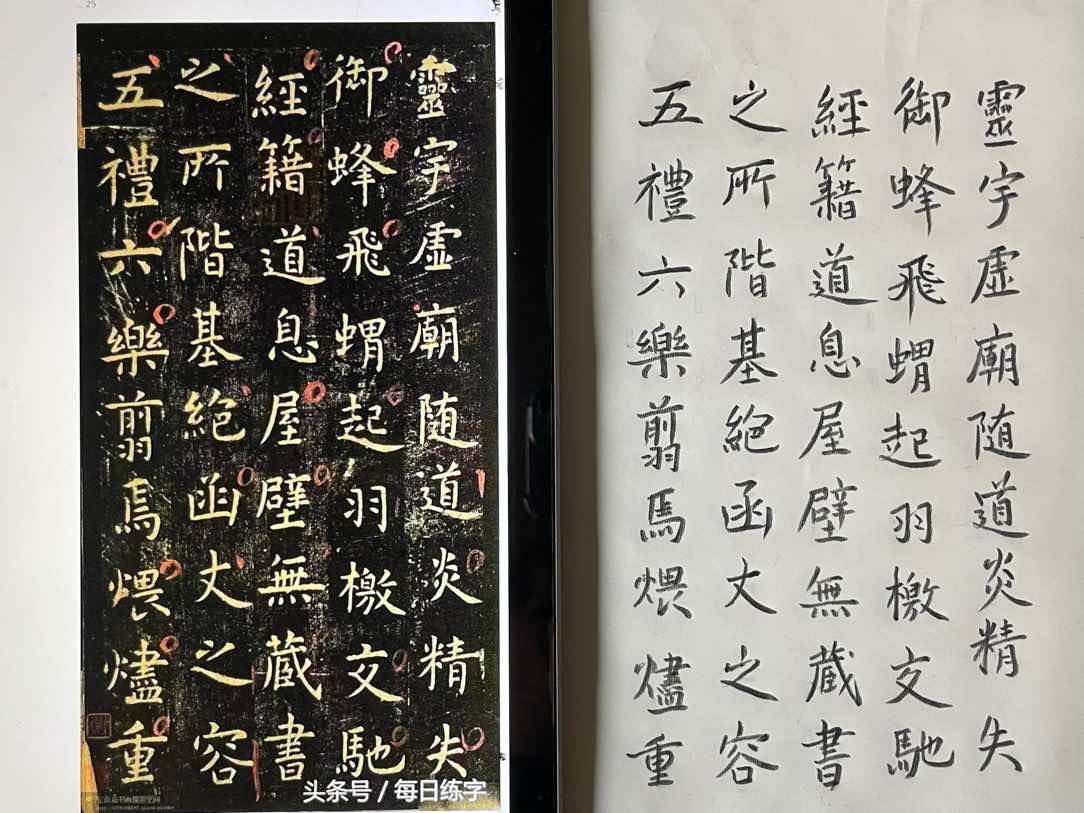 25
靈宇虛廟随道炎精失
御蜂飛蝟起羽檄文馳
經籍道息屋壁無蔵書
之所階基絕函丈之容
五禮六樂翦焉煨燼重
头条号 / 每日练字
靈宇虛廟随道炎精失
御蜂飛蝟起羽檄文馳
經籍道息屋壁無蔵書
之所階基絕函丈之容
五禮六樂翦馬煨燼重